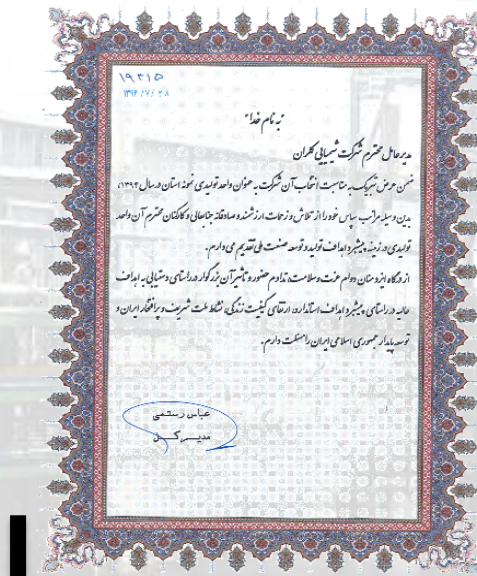 ۱۹۳۱۵
۱۳۹۴/۷/۲۸
به نام خدا
مدیرعامل محترم شرکت شیمیایی کلران
ضمن عرض تبریک به مناسبت انتخاب آن شرکت به عنوان واحد تولیدی نمونه استان در سال ۱۳۹۴،
بدین وسیله مراتب سپاس خود را از تلاش و زحمات ارزشمند و صادقانه جنابعالی و کارکنان محترم آن واحد
تولیدی در زمینه پیشبرد اهداف تولید و توسعه صنعت ملی تقدیم می دارم.
از درگاه ایزد منان دوام عزت و سلامت، تداوم حضور و تاثیر آن بزرگوار در راستای دستیابی به اهداف
عالیه در راستای پیشبرد اهداف استاندارد، ارتقای کیفیت زندگی، نشاط ملت شریف و پرافتخار ایران و
توسعه پایدار جمهوری اسلامی ایران را مسئلت دارم.
عباس رستمی
مدیر کل